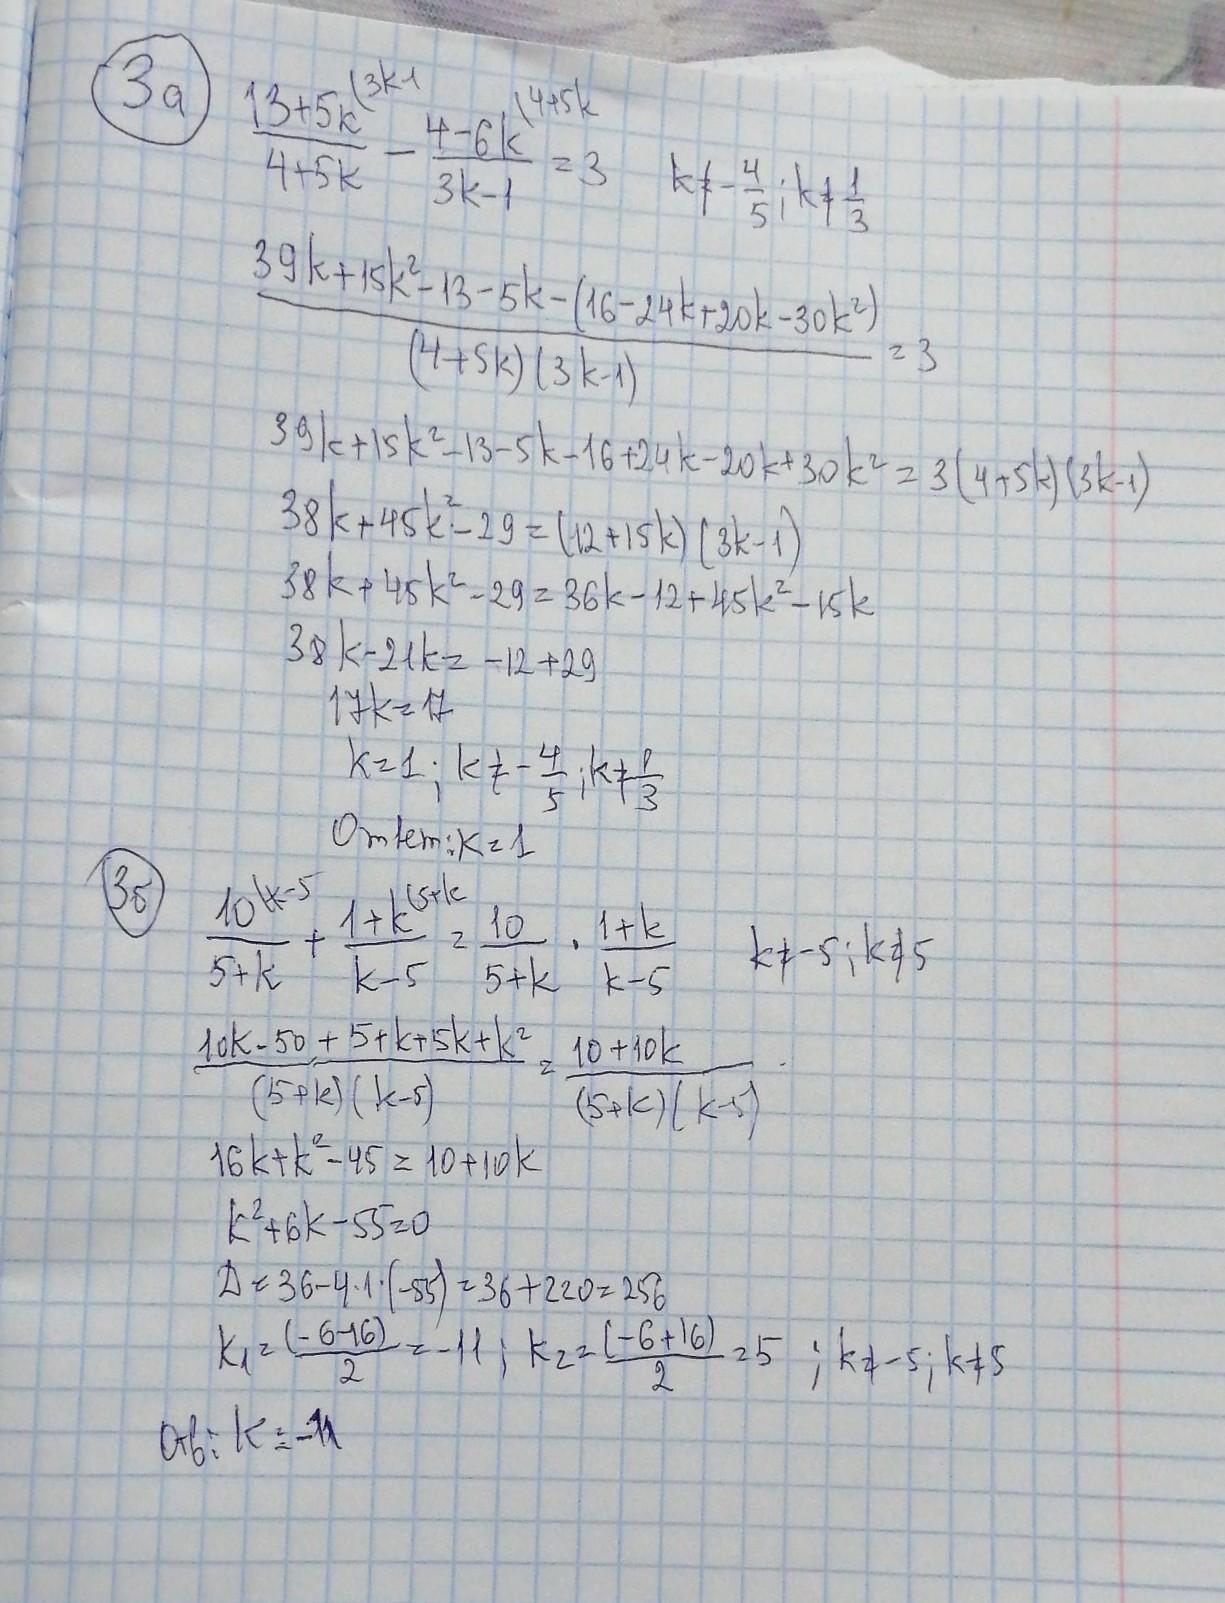 3а
(13+5k)/(4+5k) (3k-1 - (4-6k)/(3k-1) (4+5k = 3 k≠-4/5; k≠1/3
(39k+15k²-13-5k-(16-24k+20k-30k²))/((4+5k)(3k-1)) = 3
39k+15k²-13-5k-16+24k-20k+30k² = 3(4+5k)(3k-1)
38k+45k²-29=(12+15k)(3k-1)
38k+45k²-29=36k-12+45k²-15k
38k-21k=-12+29
17k=17
k=1; k≠-4/5; k≠1/3
Ответ: k=1
3б
10/(5+k) (k-5 + (1+k)/(k-5) (5+k = 10/(5+k) · (1+k)/(k-5) k≠-5; k≠5
(10k-50+5+k+5k+k²)/((5+k)(k-5)) = (10+10k)/((5+k)(k-5))
16k+k²-45=10+10k
k²+6k-55=0
D=36-4·1·(-55)=36+220=256
k₁=(-6-16)/2=-11; k₂=(-6+16)/2=5; k≠-5; k≠5
Отв: k=-11